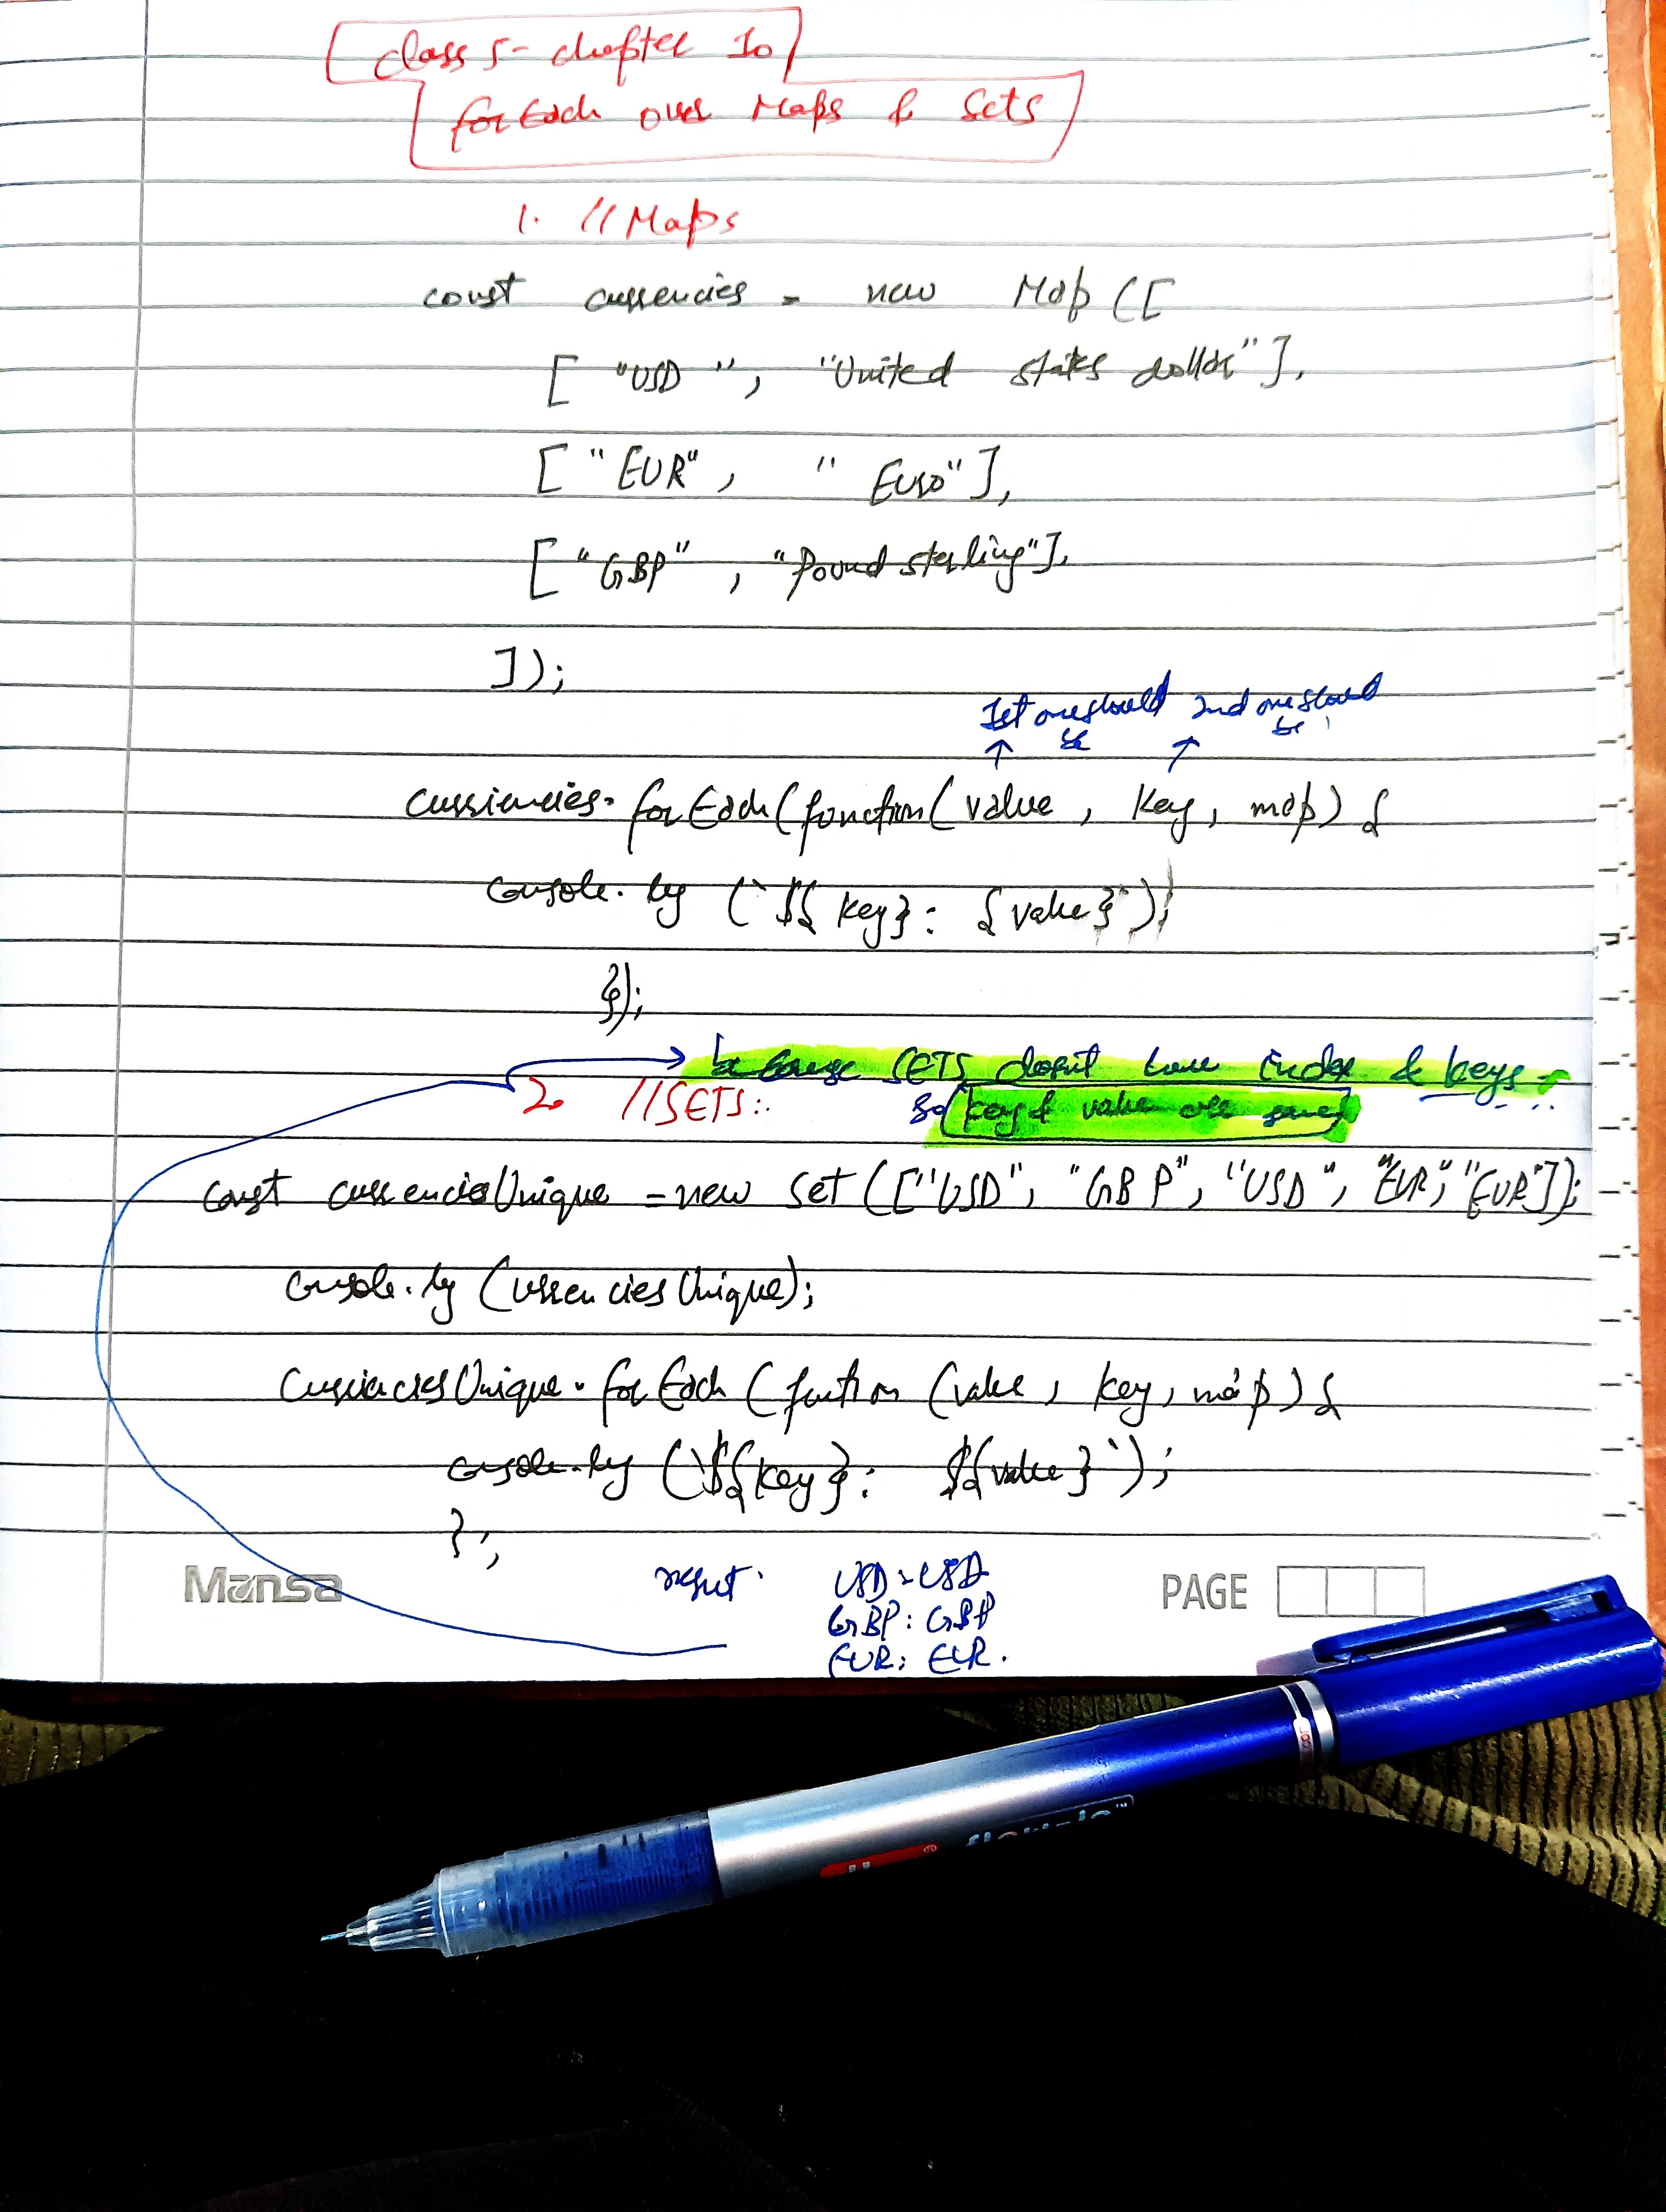 class 5- chapter 10
forEach over Maps & Sets
1. // Maps
const currencies = new Map ([
[ "USD ", "United states dollar"],
[ "EUR", " Euro"],
[ "GBP" , "Pound sterling"],
]);
1st one should be 2nd one should be
currencies. forEach(function(value , key, map) {
console. log (`${ key}: {value}`);
});
because SETS doesn't have index & keys
2. //SETS:. so key & value are same
const currenciesUnique = new Set (["USD", "GBP", "USD", "EUR", "EUR"]);
console.log (currenciesUnique);
currenciesUnique. forEach (function (value, key, map) {
console.log (`${key}: ${value}`);
};
Mansa result. USD: USD PAGE
GBP: GBP
EUR: EUR.